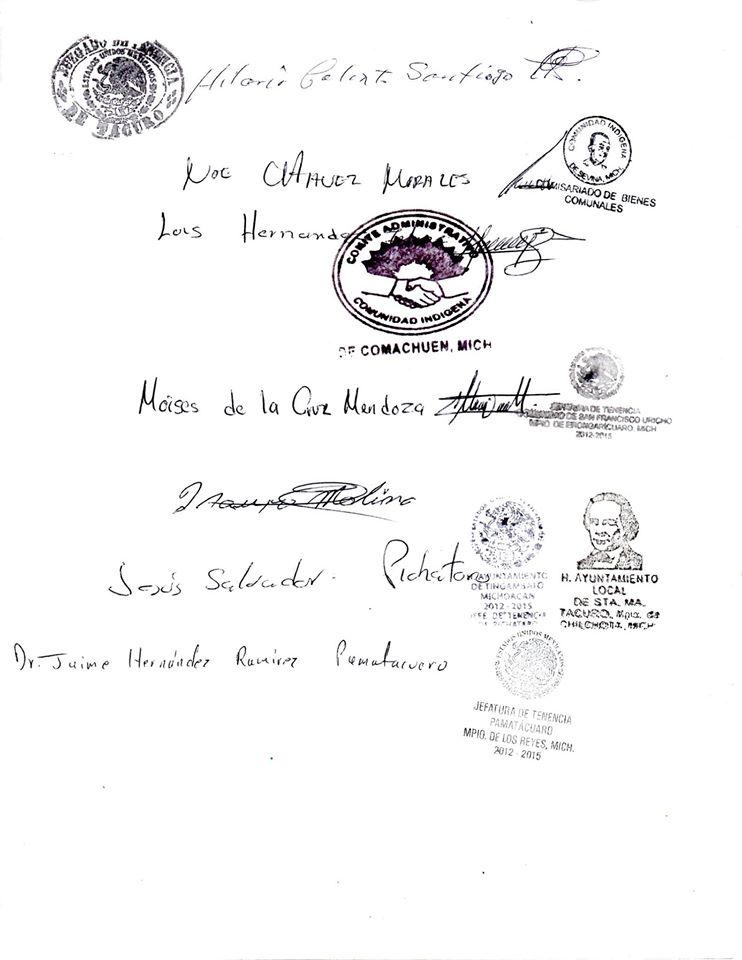 JUZGADO DE TENENCIA
ESTADOS UNIDOS MEXICANOS
DE TACURO
Hilario Santiago
COMUNIDAD INDIGENA
DE SEVINA, MICH.
Noe Chavez Morales
COMISARIADO DE BIENES
COMUNALES
Luis Hernandez
COMITE ADMINISTRATIVO
COMUNIDAD INDIGENA
DE COMACHUEN, MICH
Moises de la Cruz Mendoza
JEFATURA DE TENENCIA
COMUNIDAD DE SAN FRANCISCO URICHO
MPIO. DE ERONGARICUARO, MICH
2012-2015
Molina
Jesús Salvador. Pichataro
AYUNTAMIENTO
DE TINGAMBATO
MICHOACAN
2012-2015
JEFE DE TENENCIA
DE PICHATARO
H. AYUNTAMIENTO
LOCAL
DE STA. MA.
TACURO, Mpio. de
CHILCHOTA, MICH.
Dr. Jaime Hernández Ramírez Pamatacuaro
ESTADOS UNIDOS MEXICANOS
JEFATURA DE TENENCIA
PAMATÁCUARO
MPIO. DE LOS REYES, MICH.
2012 - 2015